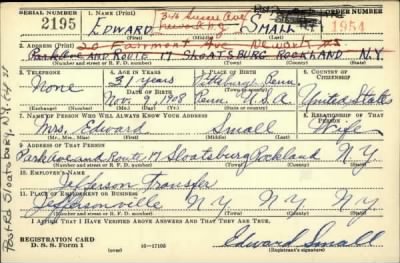 SERIAL NUMBER
2195
1. NAME (Print)
EDWARD SMALL
(First) (Middle) (Last)
ORDER NUMBER
1954
20 Fairmont Ave Newark N.J.
2. ADDRESS (Print)
Park Ave and ROUTE 17 SLOATSBURG ROCKLAND N.Y.
(Number and street or R. F. D. number) (Town) (County) (State)
3. TELEPHONE
None
(Exchange) (Number)
4. AGE IN YEARS
31 years
DATE OF BIRTH
Nov. 9 1908
(Mo.) (Day) (Yr.)
5. PLACE OF BIRTH
Pittsburgh Penn
(Town or county)
Penn U.S.A
(State or country)
6. COUNTRY OF CITIZENSHIP
United States
7. NAME OF PERSON WHO WILL ALWAYS KNOW YOUR ADDRESS
Mrs. Edward Small
(Mr., Mrs., Miss) (First) (Middle) (Last)
8. RELATIONSHIP OF THAT PERSON
Wife
9. ADDRESS OF THAT PERSON
Park Ave and Route 17 Sloatsburg Rockland N.Y.
(Number and street or R. F. D. number) (Town) (County) (State)
10. EMPLOYER'S NAME
Jefferson Transfer
11. PLACE OF EMPLOYMENT OR BUSINESS
Jeffersonville N.Y. N.Y. N.Y.
(Number and street or R. F. D. number) (Town) (County) (State)
I AFFIRM THAT I HAVE VERIFIED ABOVE ANSWERS AND THAT THEY ARE TRUE.
REGISTRATION CARD
D. S. S. Form 1
(over)
16—17105
Edward Small
(Registrant's signature)